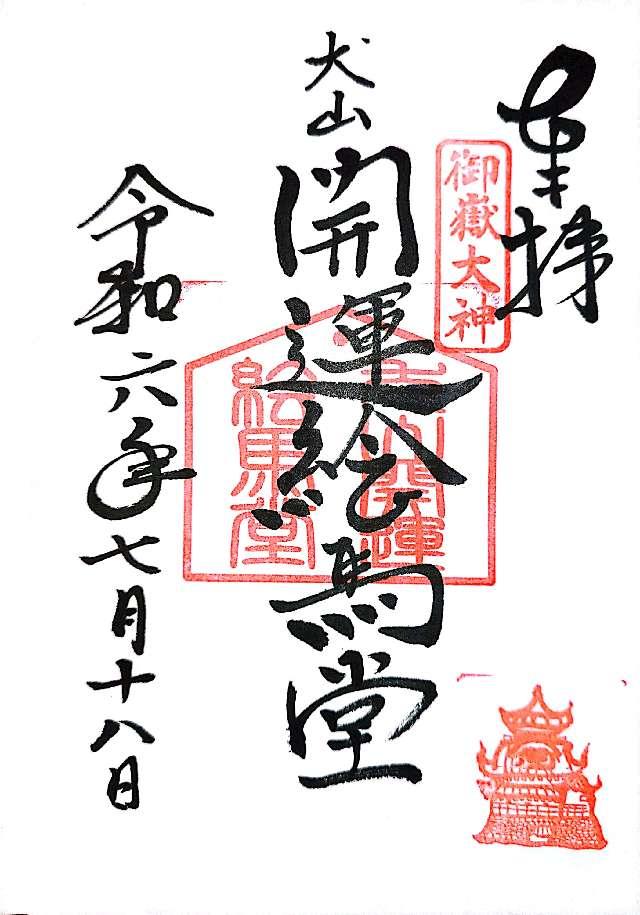 奉拝
御嶽大神
犬山
開運絵馬堂
犬山開運
絵馬堂
令和六年七月十八日